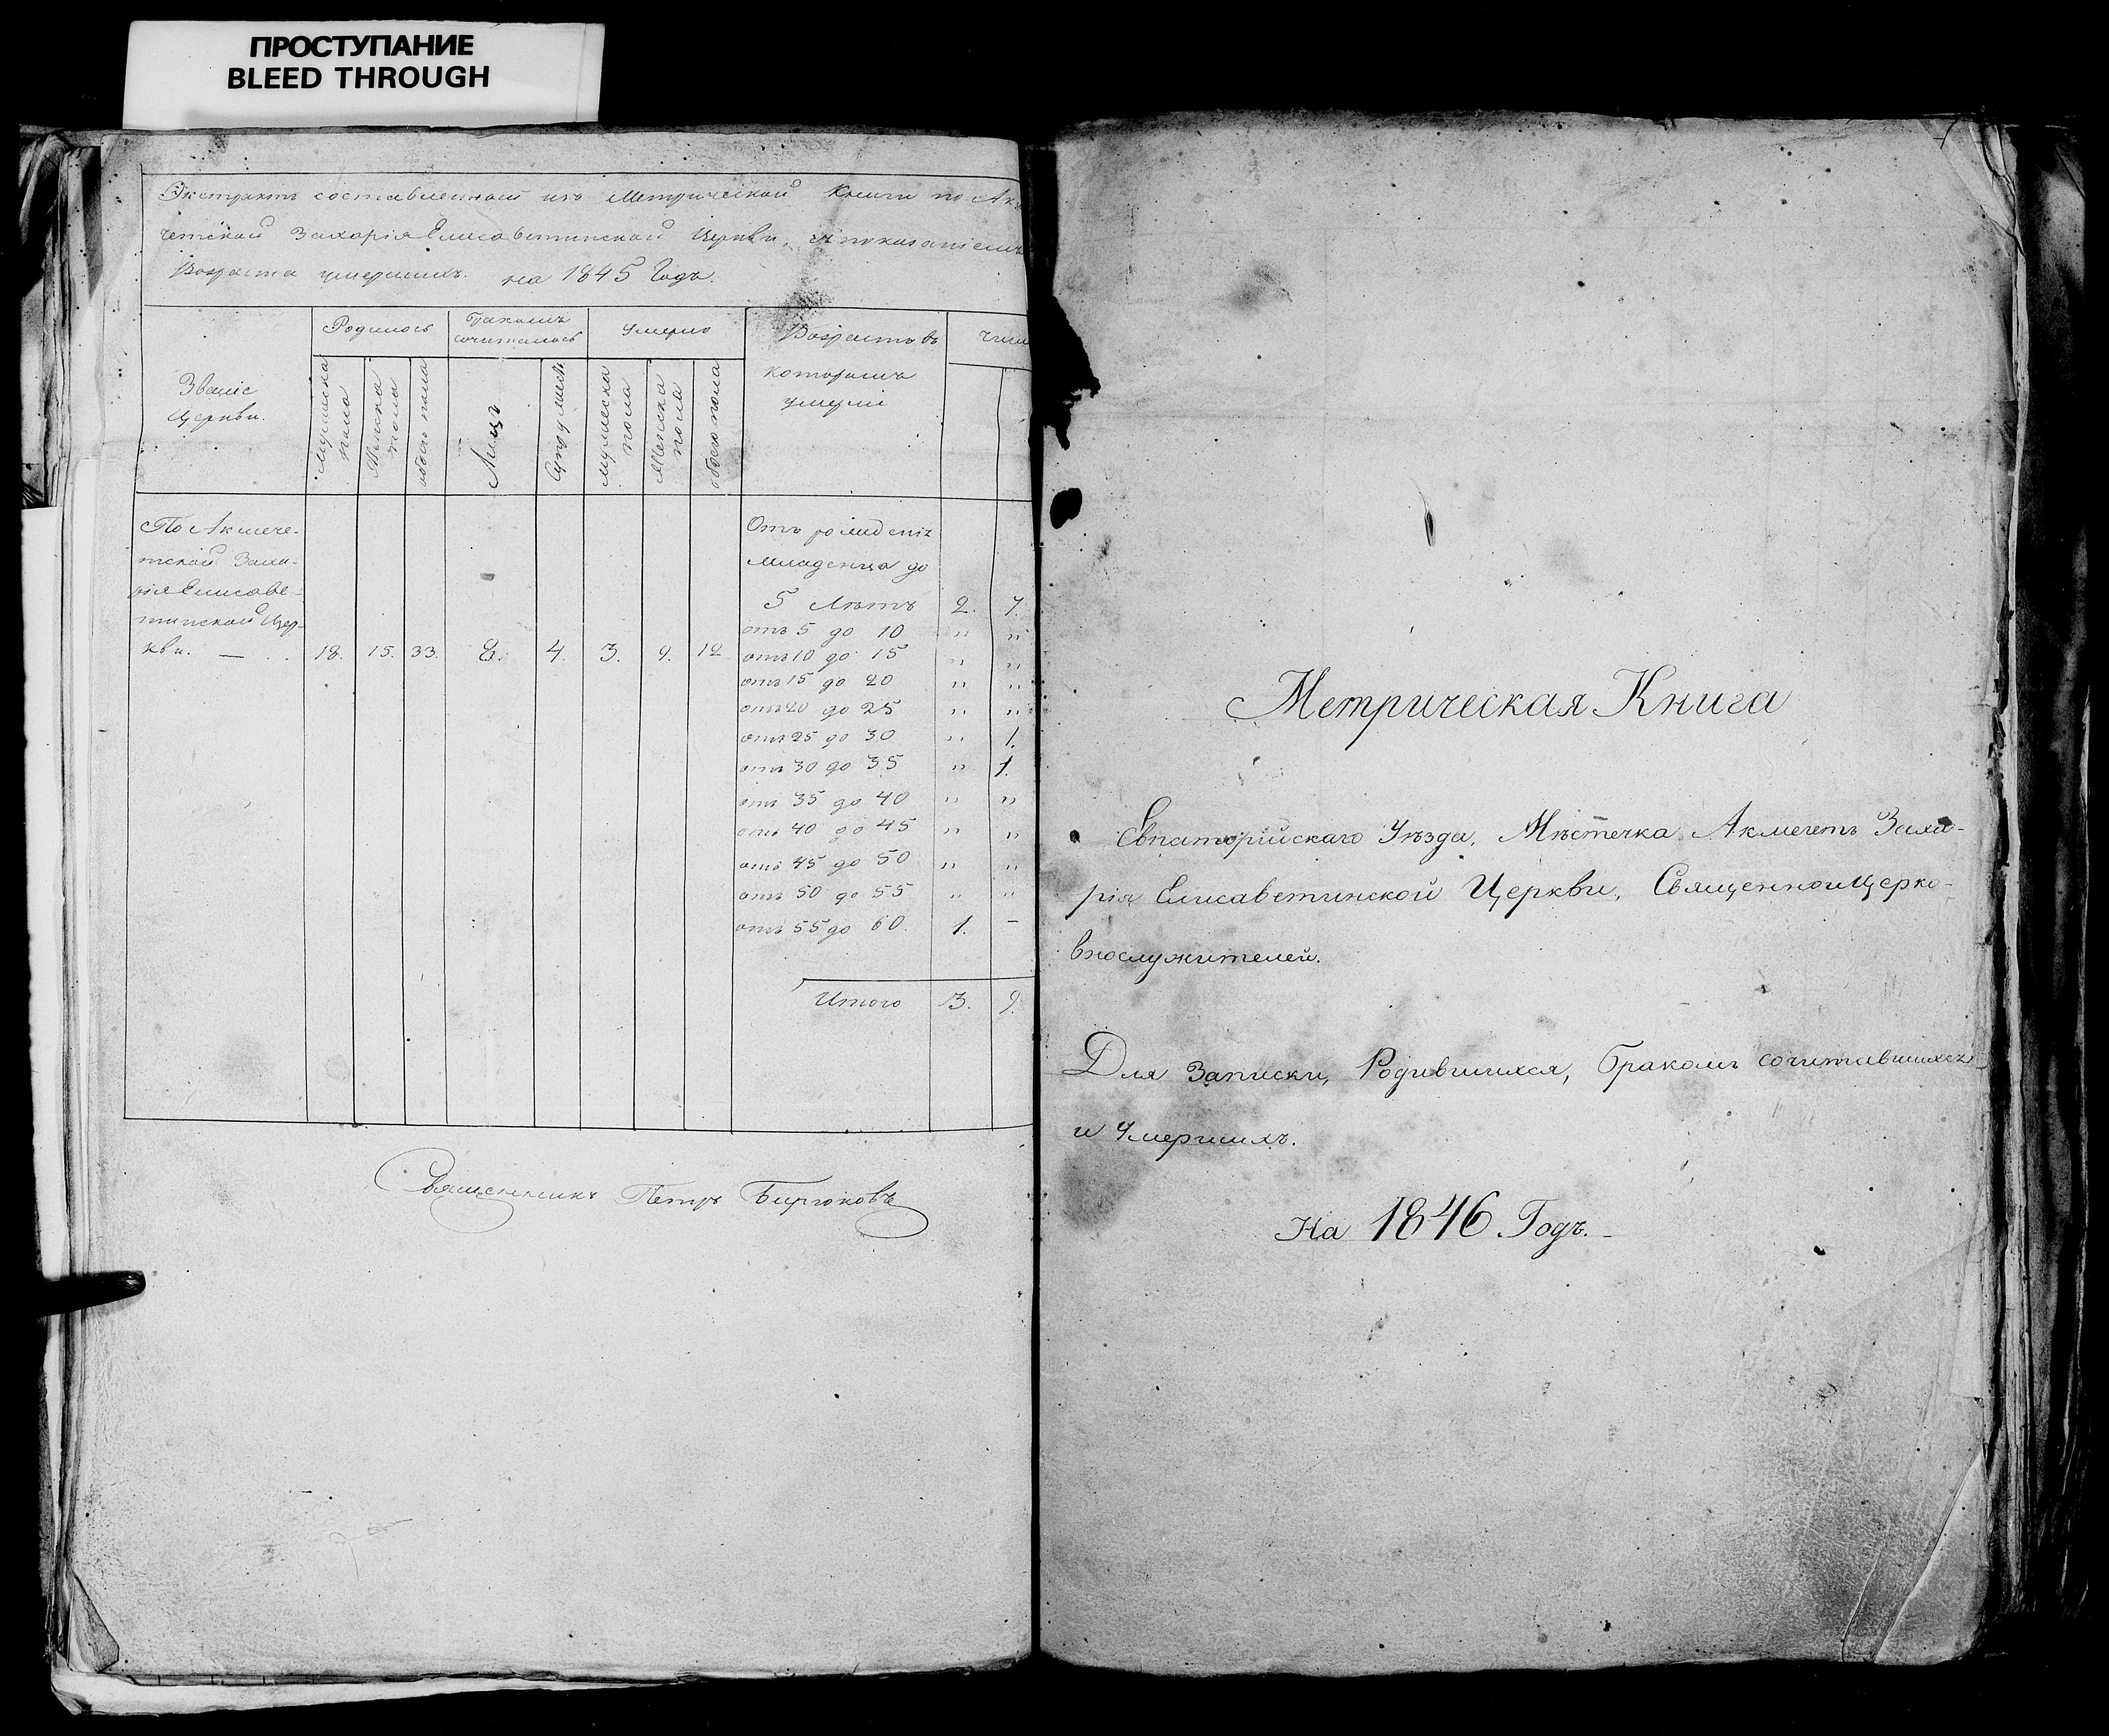 ПРОСТУПАНИЕ
BLEED THROUGH
Экстрактъ составленный изъ Метрической Книги по Ак
четской Захарія Елисаветинской Церкви, съ показаніемъ
Возраста умершихъ. на 1845 Годъ.
Званіе Церкви.
Родилось
Мужеска пола
Женска пола
обоего пола
Бракомъ сочиталось
Лицъ
Супружествъ
Умерло
мужеска пола
Женска пола
обоего пола
Возрастъ въ
которомъ
умерли
Числ
По Акмече-
тской Заха-
рія Елисаве-
тинской Цер-
кви. — . . 18. 15. 33. 8. 4. 3. 9. 12
Отъ рожденія
младенца до
5 Лѣтъ 2. 7.
отъ 5 до 10 „ „
отъ 10 до 15 „ „
отъ 15 до 20 „ „
отъ 20 до 25 „ „
отъ 25 до 30 „ 1.
отъ 30 до 35 „ 1.
отъ 35 до 40 „ „
отъ 40 до 45 „ „
отъ 45 до 50 „ „
отъ 50 до 55 „ „
отъ 55 до 60. 1. –
Итого 3. 9.
Священникъ Петръ Бирюковъ
Метрическая Книга
Евпаторійскаго Уѣзда, Мѣстечка Акмечетъ Заха-
рія Елисаветинской Церкви, Священноицерко-
внослужителей.
Для Записки, Родившихся, Бракомъ сочитавшихся
и Умершихъ.
На 1846 Годъ.